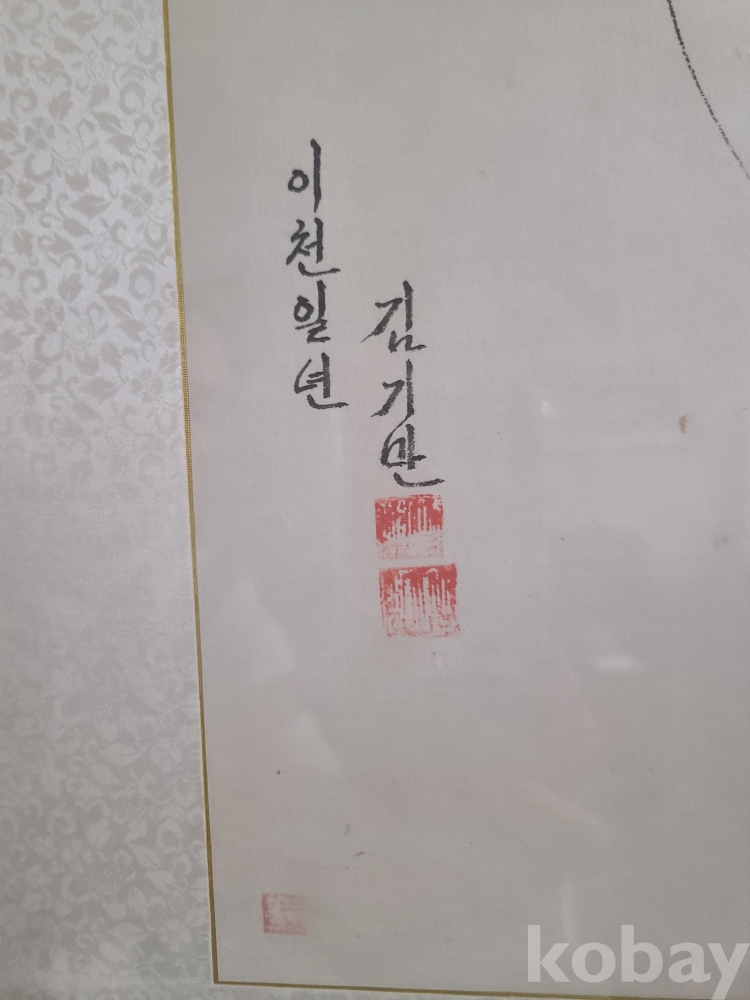 이천일년
김기만
kobay